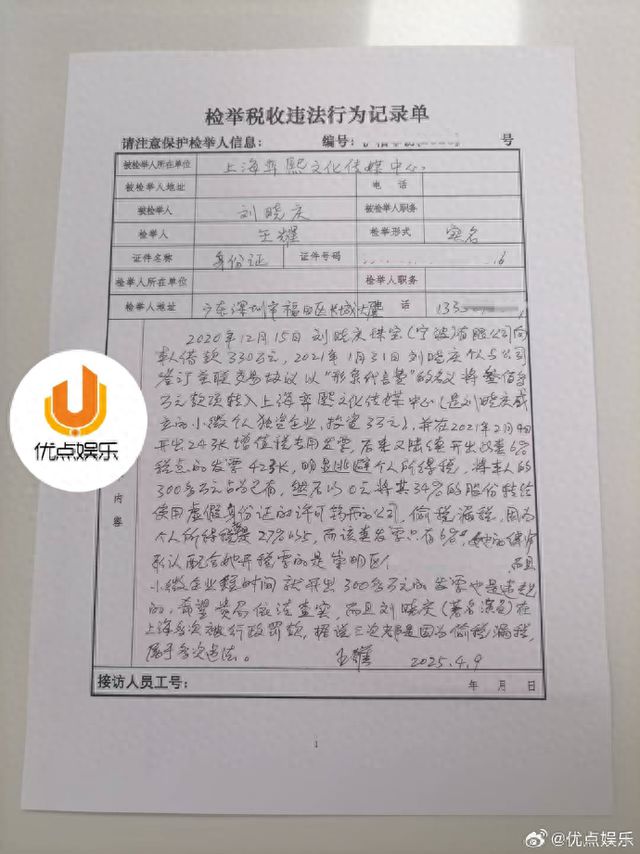 检举税收违法行为记录单
请注意保护检举人信息： 编号： 号
被检举人所在单位 上海弈熙文化传媒中心
被检举人地址 电 话
被检举人 刘晓庆 被检举人职务
检举人 王耀 检举形式 实名
证件名称 身份证 证件号码 6
检举人所在单位 检举人职务
检举人地址 广东深圳市福田区长城大厦 话 133
2020年12月15日刘晓庆珠宝（宁波）有限公司向
本人借款330万元，2021年1月31日刘晓庆个人与公司
签订关联交易协议以“形象代言费”的名义将叁佰多
万元款项转入上海弈熙文化传媒中心（是刘晓庆成
立的小微个人独资企业，投资3万元），并在2021年2月4日
开出243张增值税专用发票，后来又陆续开出6%
税点的发票42张，明显逃避个人所得税，将本人的
300多万元占为己有，然后以0元将其34%的股份转给
使用虚假身份证的许可的公司，偷税漏税，因为
个人所得税是27%，而该类发票只有6%。她的律师
承认配合她开税票的是崇明区 而且
小微企业短时间就开出300多万元的发票也是违规
的，希望贵局依法查实，而且刘晓庆（著名演员）在
上海多次被行政罚款，据说三次都是因为偷税漏税，
属于多次违法。 王耀 2025.4.9
内容
接访人员工号： 年 月 日
1
优点娱乐
@优点娱乐